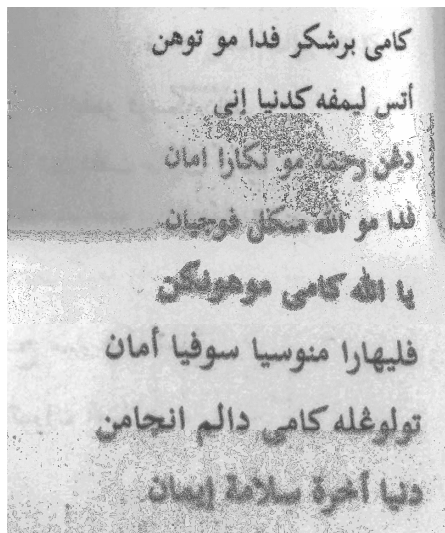 كامى برشكر فدا مو توهن
أتس ليمفه كدنيا إنى
دڠن رحمة مو نكارا امان
فدا مو الله سكل فوجيان
يا الله كامى موهونكن
فليهارا منوسيا سوفيا أمان
تولوڠله كامى دالم انچامن
دنيا أخرة سلامة إيمان